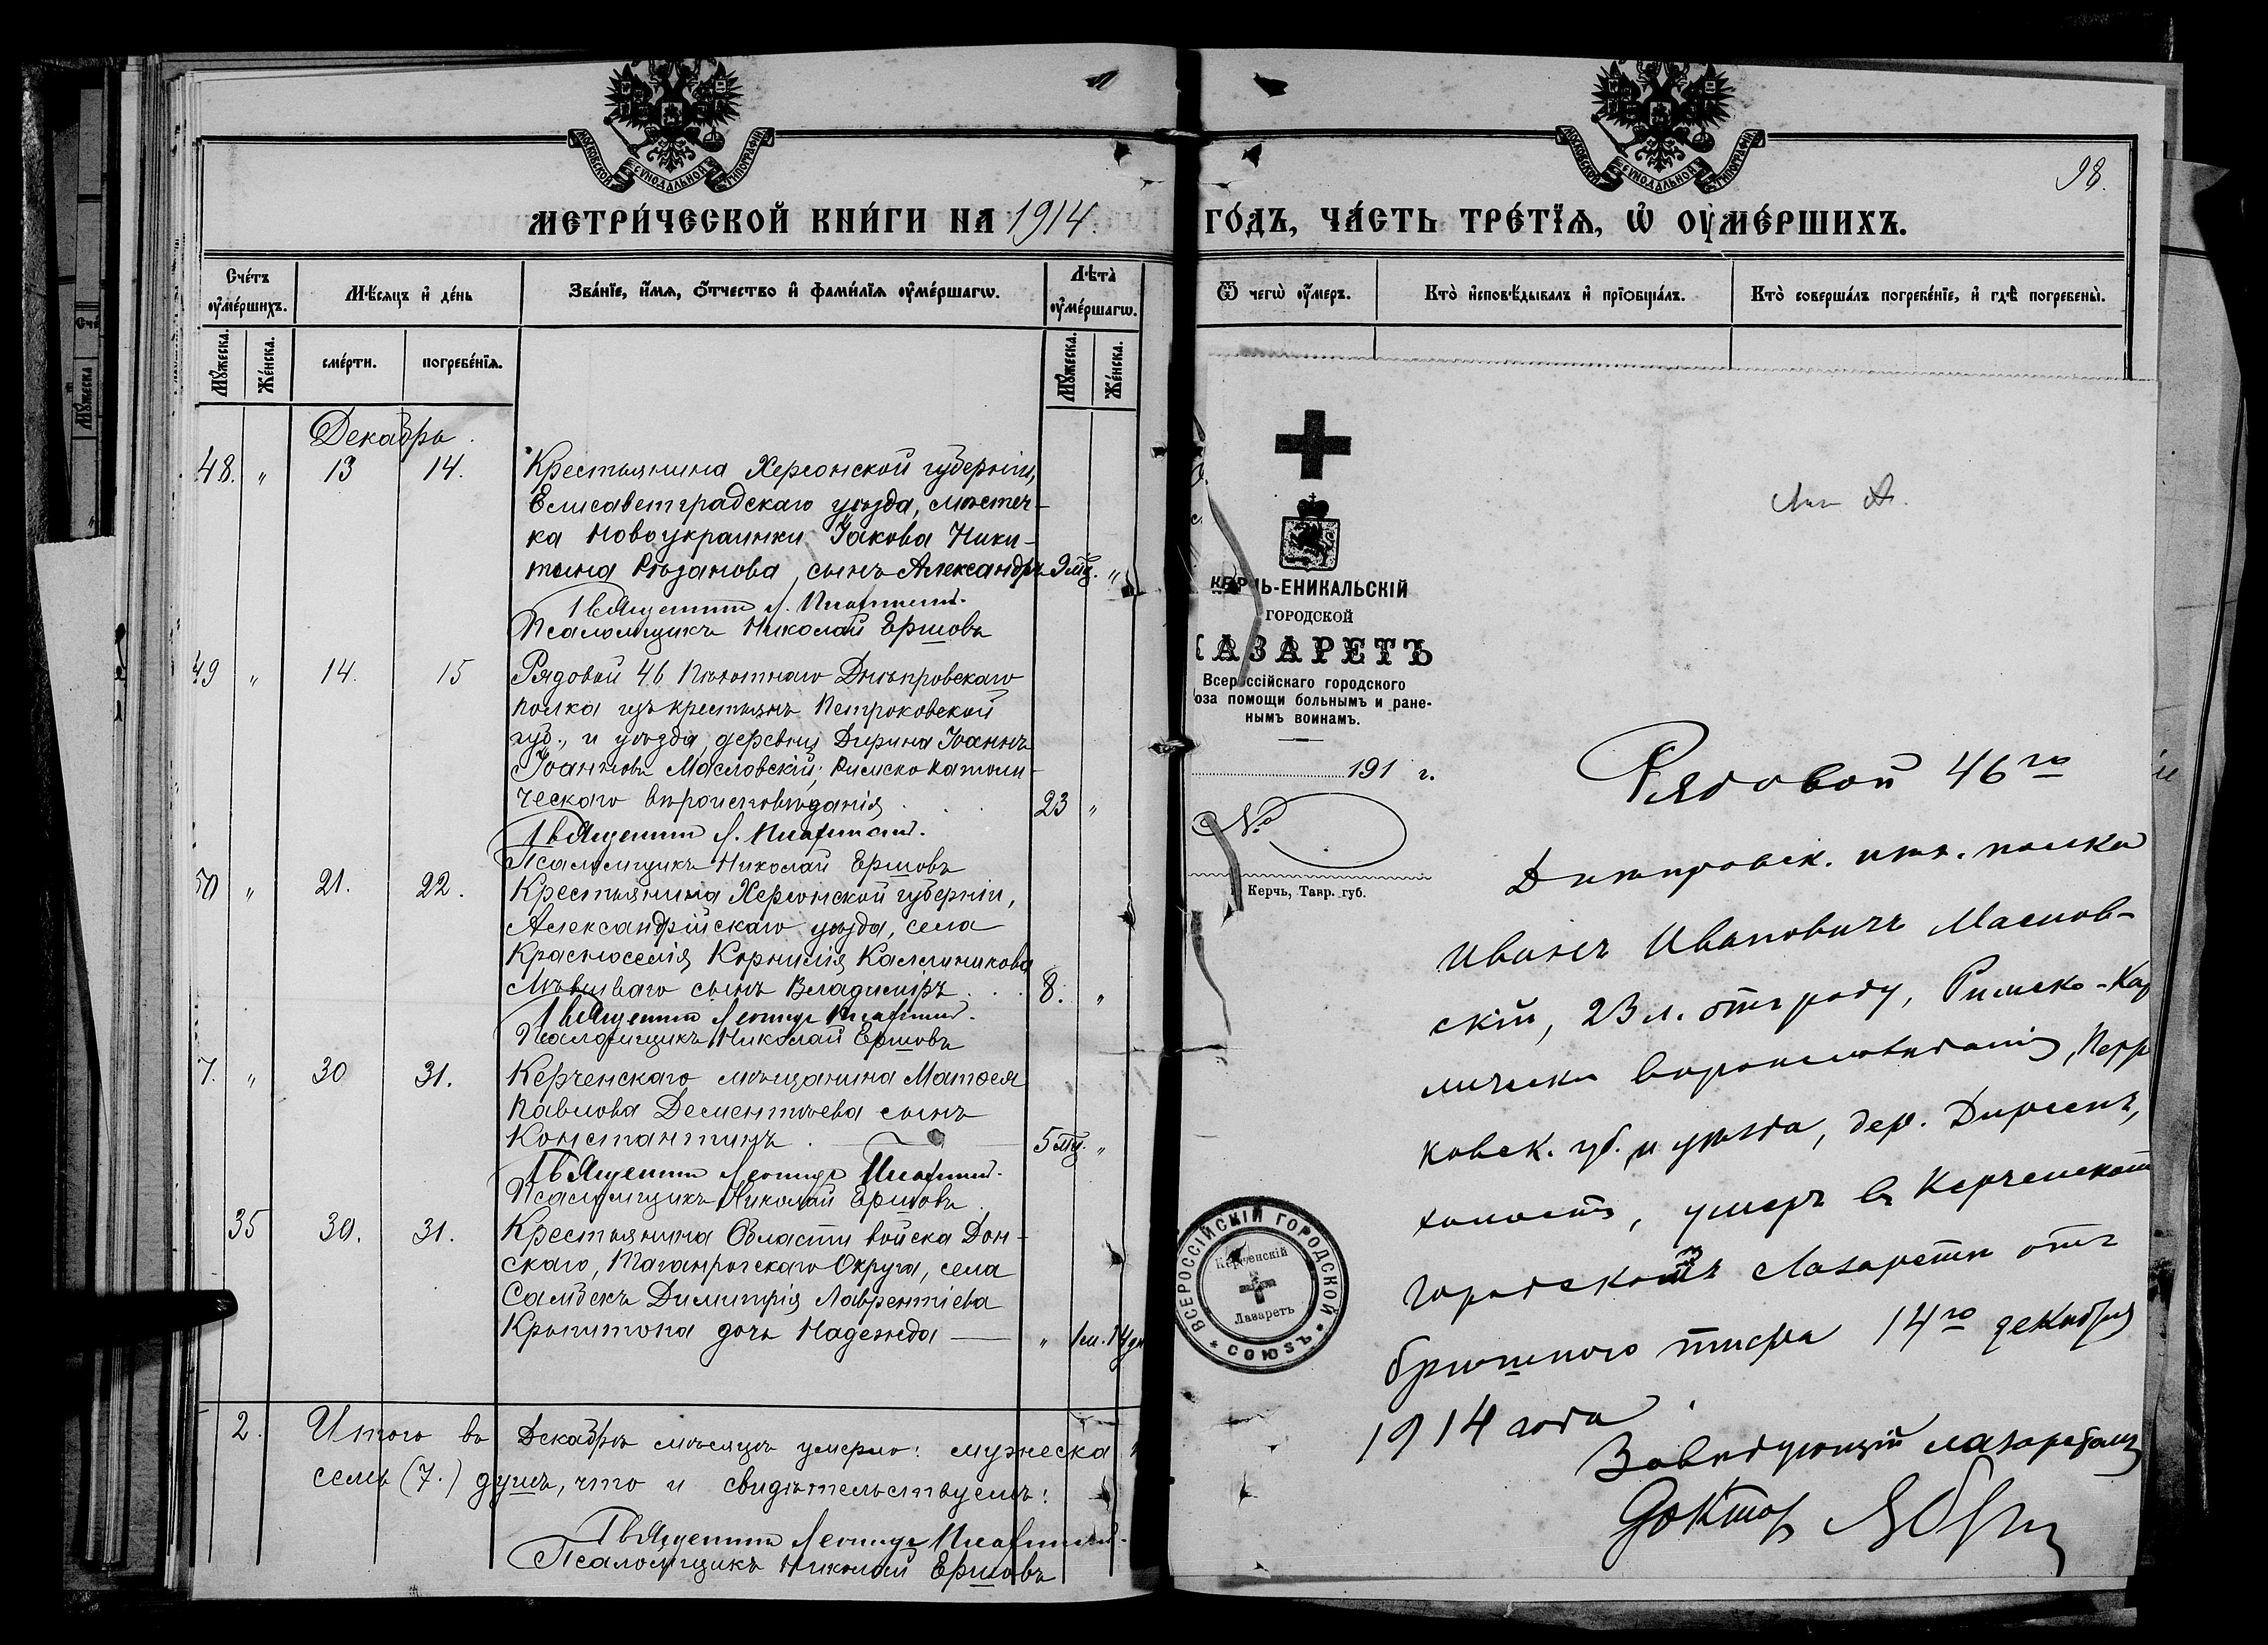 МОСКОВСКОЙ СѴНОДАЛЬНОЙ ТИПОГРАФІИ
МЕТРИ́ЧЕСКОЙ КНИ́ГИ НА 1914.
Сче́тъ оу҆ме́ршихъ.
Мѣ́сяцъ и҆ де́нь
Зва́нїе, и҆́мѧ, ѻ҆́тчество и҆ фами́лїѧ оу҆ме́ршагѡ.
Лѣ́та оу҆ме́ршагѡ.
Мꙋ́жеска.
Же́нска.
сме́рти.
погребе́нїѧ.
Мꙋ́жеска.
Же́нска.
Декабрь.
48. " 13 14. Крестьянина Херсонской губерніи,
Елисаветградскаго уѣзда, мѣстеч-
ка Новоукраинки Іакова Ники-
тина Рѣзанова, сынъ Александръ 9 мц. "
Священникъ Л.
Псаломщикъ Николай Ершовъ
49 " 14. 15 Рядовой 46 пѣхотнаго Днѣпровскаго
полка изъ крестьянъ Петроковской
губ., и уѣзда, деревни Дирина Іоаннъ
Іоанновъ Масловскій; Римско Католи-
ческаго вѣроисповѣданія 23 "
Священникъ Л.
Псаломщикъ Николай Ершовъ
50 " 21. 22. Крестьянина Херсонской губерніи,
Александрійскаго уѣзда, села
Красноселія Корнилія Каллиникова
сынъ Владиміръ 8. "
Священникъ Леонидъ
Псаломщикъ Николай Ершовъ
7. " 30 31. Керченскаго мѣщанина Матѳея
Павлова Дементьева сынъ
Константинъ 5 мц. "
Священникъ Леонидъ
Псаломщикъ Николай Ершовъ
35 30. 31. Крестьянина Области войска Дон-
скаго, Таганрогскаго Округа, села
Самбекъ Димитрія Лаврентіева
дочь Надежда — " 1 м. 14 дн
2. Итого въ Декабрѣ мѣсяцѣ умерло: мужеска
семь (7.) душъ, что и свидѣтельствуемъ:
Священникъ Леонидъ
Псаломщикъ Николай Ершовъ
МОСКОВСКОЙ СѴНОДАЛЬНОЙ ТИПОГРАФІИ
98.
ГО́ДЪ, ЧА́СТЬ ТРЕ́ТЇѦ, Ѡ҆ ОУ҆МЕ́РШИХЪ.
Ѿ чегѡ̀ оу҆́меръ.
Кто̀ и҆сповѣ́дывалъ и҆ прїѡбща́лъ.
Кто̀ соверша́лъ погребе́нїе, и҆ гдѣ̀ погребены̀.
КЕРЧЬ-ЕНИКАЛЬСКІЙ
ГОРОДСКОЙ
ЛАЗАРЕТЪ
Всероссійскаго городского
оза помощи больнымъ и ране-
нымъ воинамъ.
191 г.
№
Керчь, Тавр. губ.
Рядовой 46го
Днѣпровск. пѣх. полка
Иванъ Ивановичъ Маслов-
скій, 23 л. отъ роду, Римско-Като
лическ вѣроисповѣданія, Петр
ковск. губ. и уѣзда, дер. Дирсенъ,
холостъ, умеръ въ Керченскомъ
Городскомъ Лазаретѣ отъ
брюшного тифа 14го декабря
1914 года.
Завѣдующій лазаретомъ
Докторъ
ВСЕРОССІЙСКІЙ ГОРОДСКОЙ
СОЮЗЪ
Керченскій
Лазаретъ